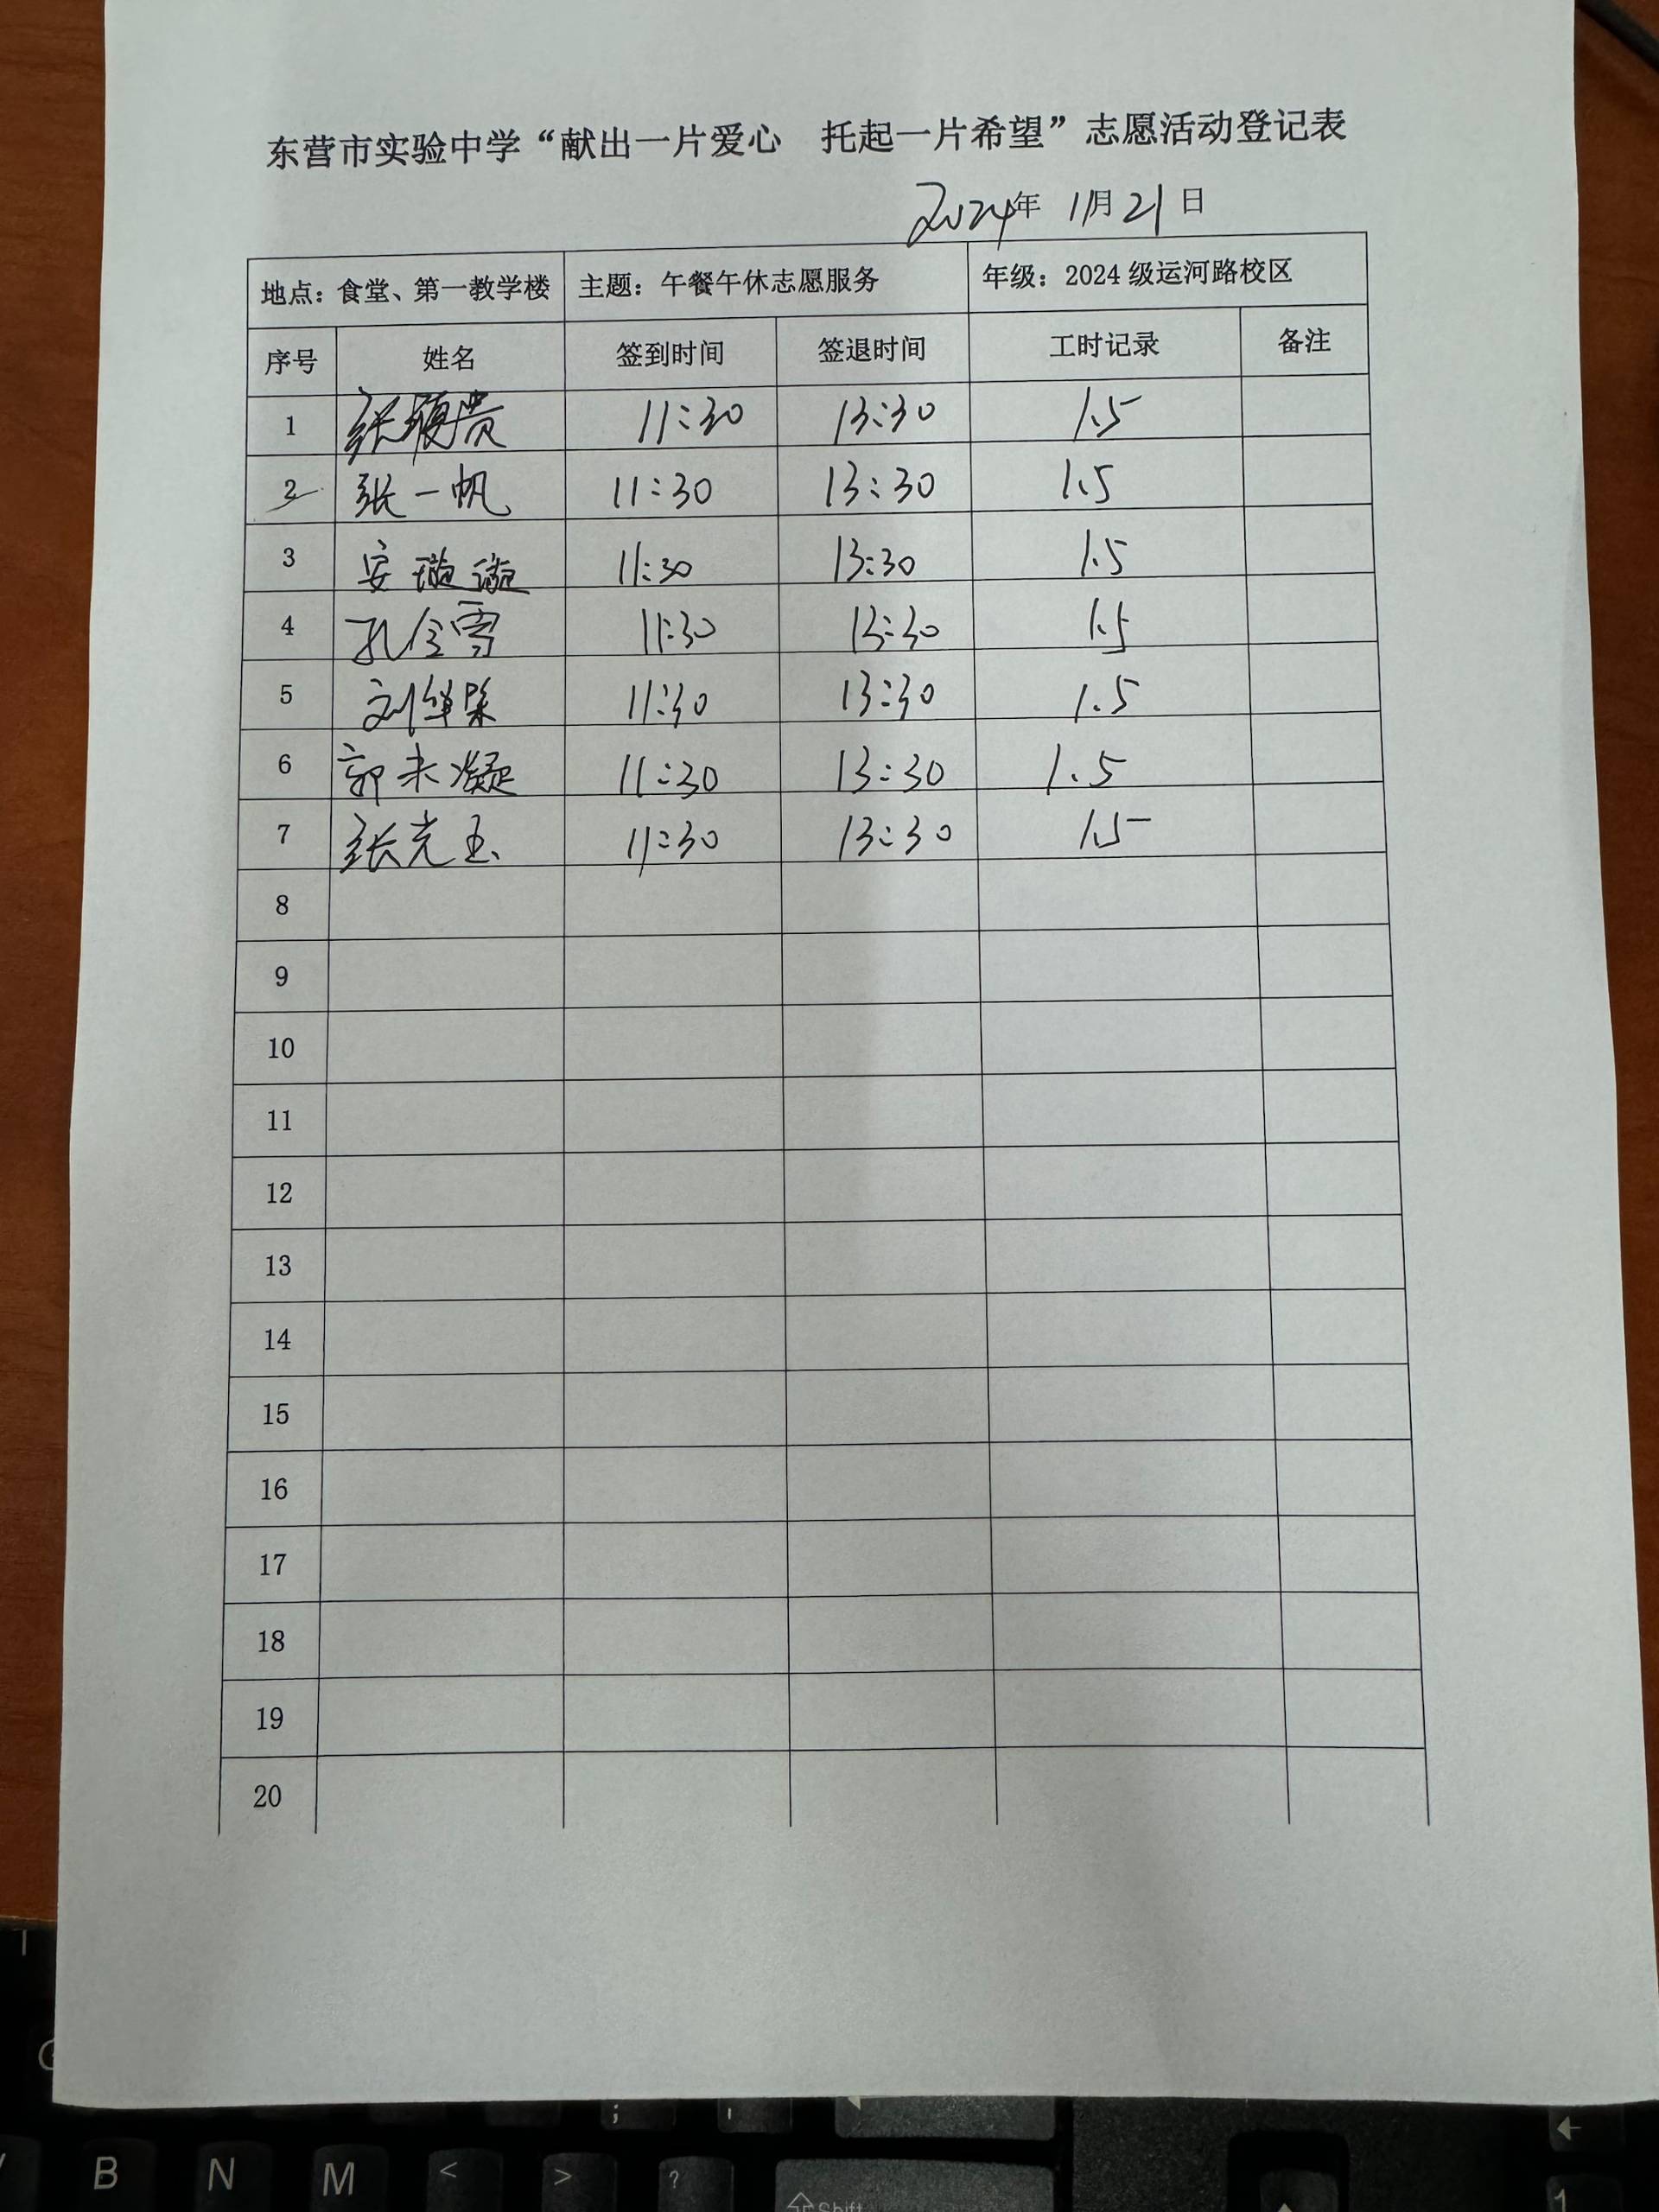 东营市实验中学“献出一片爱心 托起一片希望”志愿活动登记表
2024年 11月21日
地点：食堂、第一教学楼 主题：午餐午休志愿服务 年级：2024级运河路校区
序号 姓名 签到时间 签退时间 工时记录 备注
1 张 贵 11:30 13:30 1.5
2 张一帆 11:30 13:30 1.5
3 安璇璇 11:30 13:30 1.5
4 孔令雪 11:30 13:30 1.5
5 刘 11:30 13:30 1.5
6 郭未凝 11:30 13:30 1.5
7 张光玉 11:30 13:30 1.5
8
9
10
11
12
13
14
15
16
17
18
19
20
; '
B N M < > ?
Shift
1